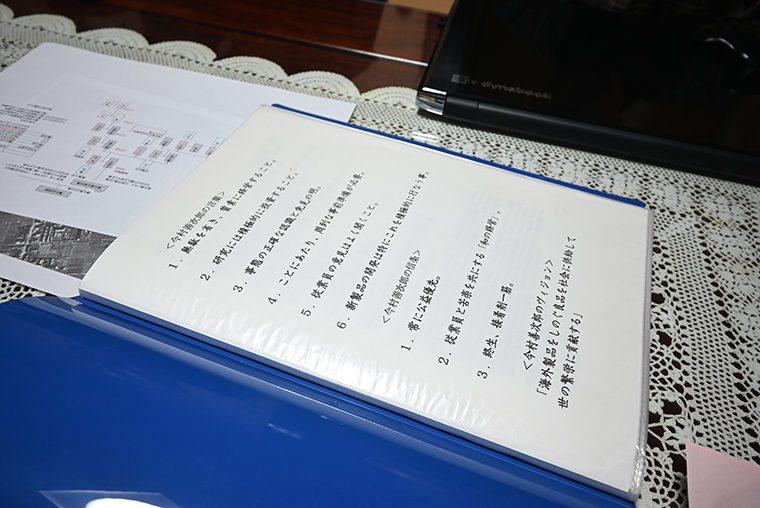 <今村善次郎の言葉>
1. 無駄を省き、質素に経営すること。
2. 研究には積極的に投資すること。
3. 事態の正確な認識と先見の明。
4. ことにあたり、周到な事前準備が必要。
5. 従業員の意見はよく聞くこと。
6. 新製品の開発は特にこれを積極的に行なう事。
<今村善次郎の信条>
1. 常に公益優先。
2. 従業員と苦楽を共にする「和の経営」。
3. 終生、接着剤一筋。
<今村善次郎のヴィジョン>
「海外製品をしのぐ良品を社会に供給して
世の繁栄に貢献する」
dynabook